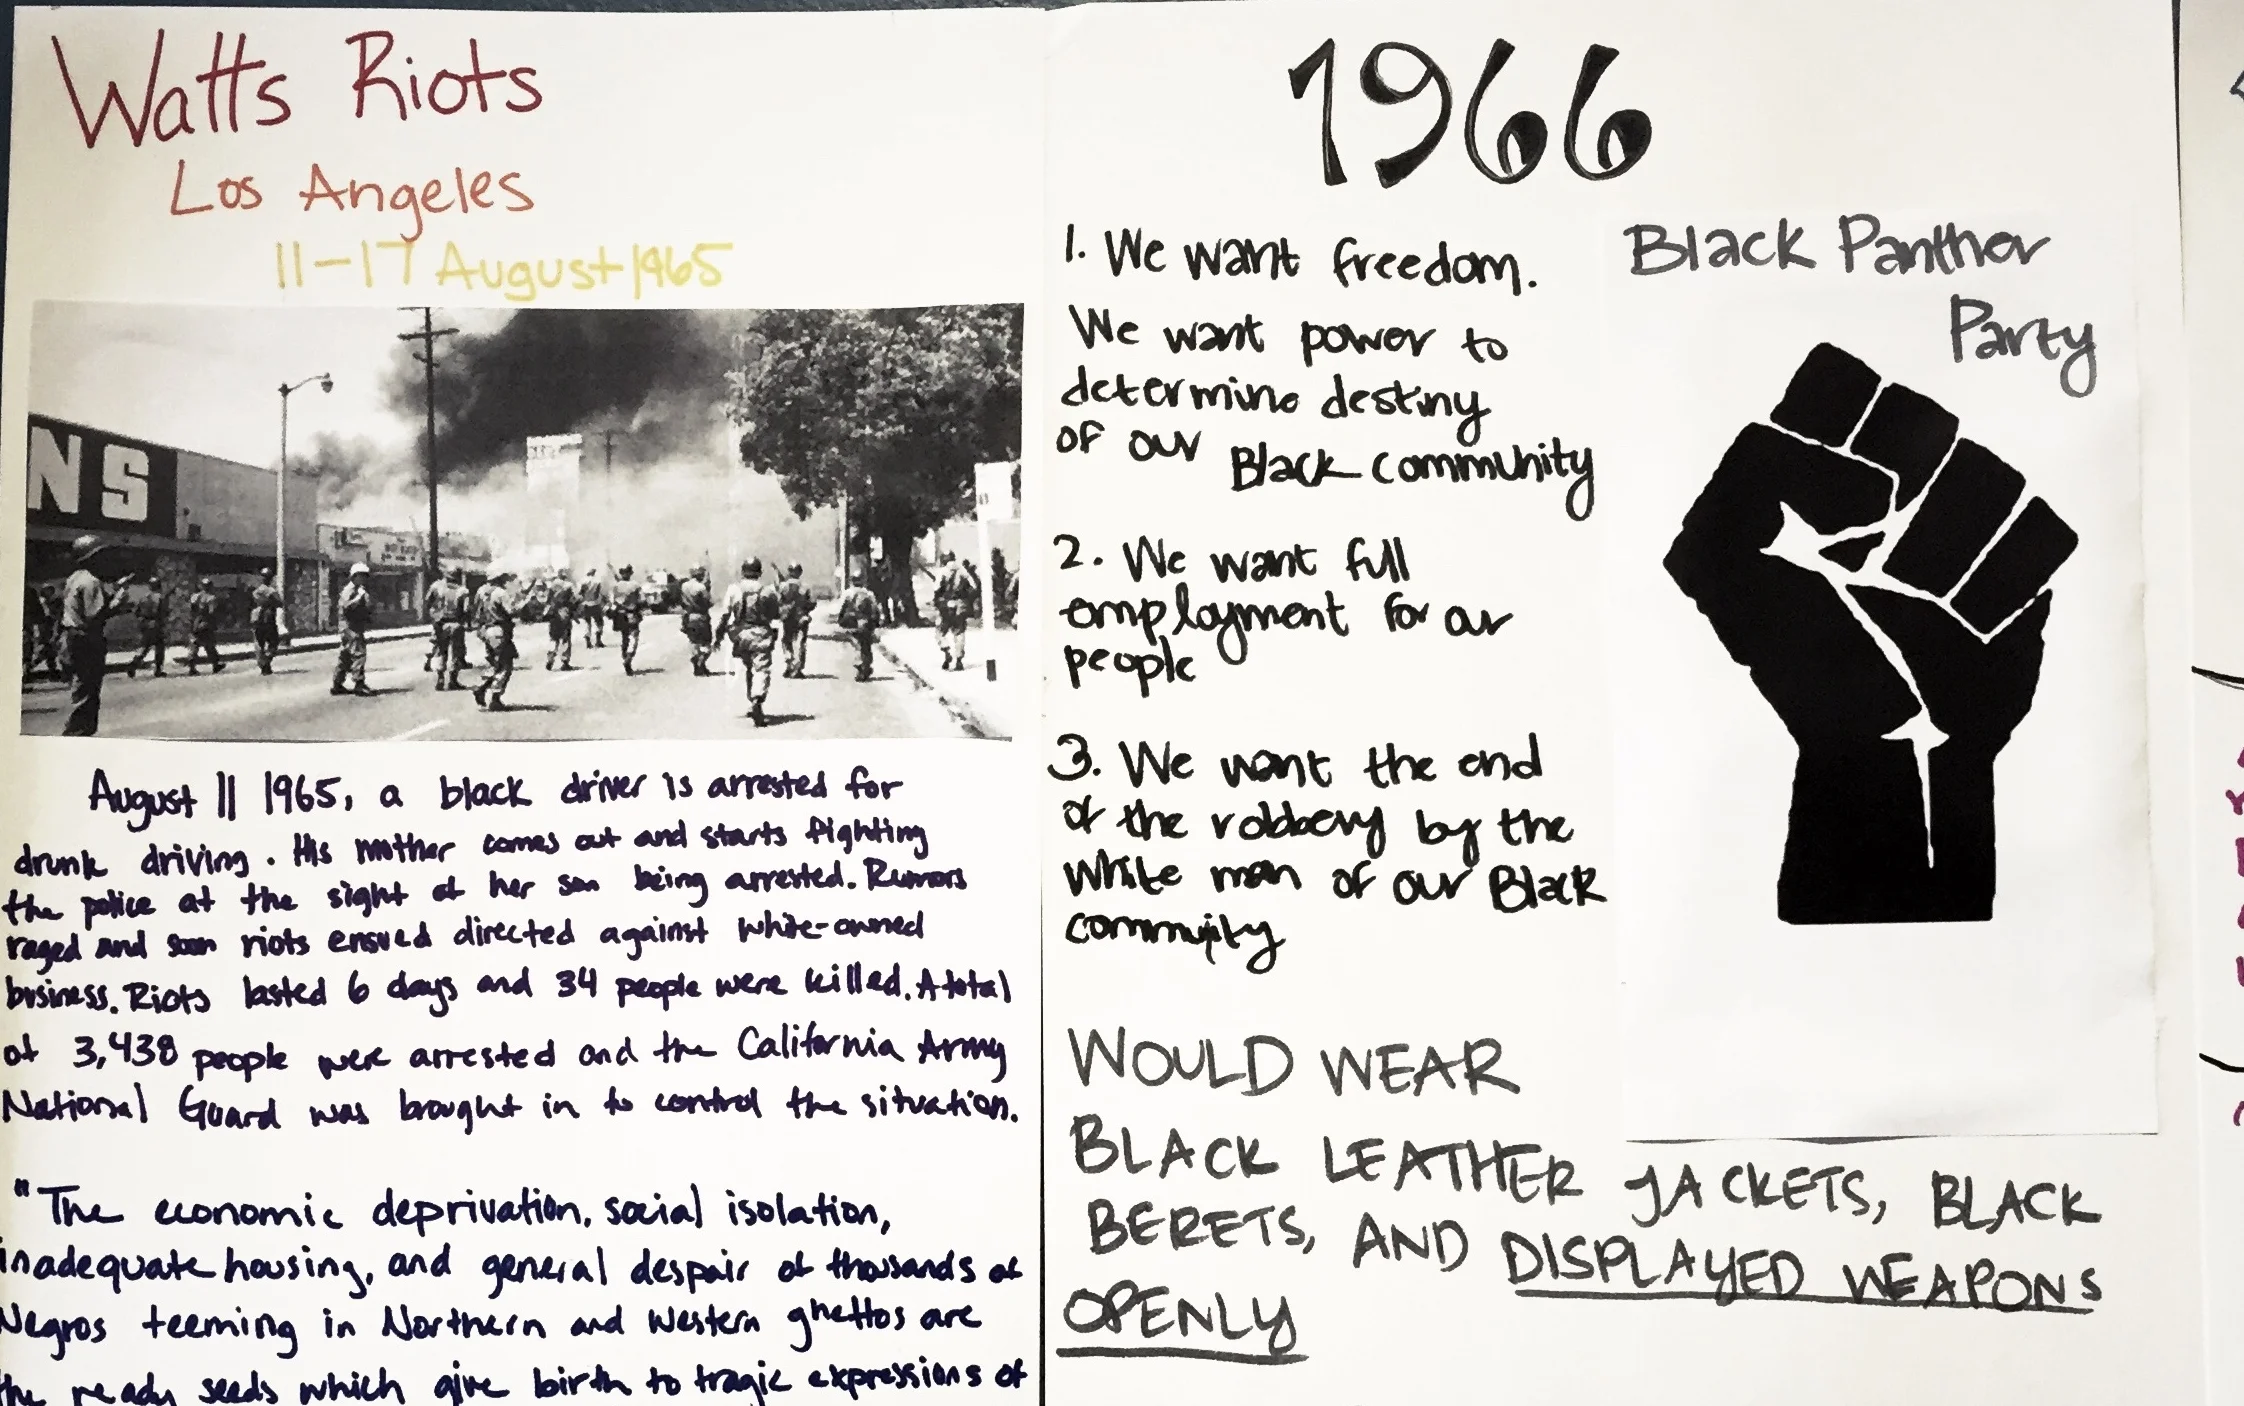 Watts Riots
Los Angeles
11-17 August 1965
NS
August 11 1965, a black driver is arrested for
drunk driving. His mother comes out and starts fighting
the police at the sight of her son being arrested. Rumors
raged and soon riots ensued directed against white-owned
business. Riots lasted 6 days and 34 people were killed. A total
of 3,438 people were arrested and the California Army
National Guard was brought in to control the situation.
"The economic deprivation, social isolation,
inadequate housing, and general despair of thousands of
Negros teeming in Northern and Western ghettos are
the ready seeds which give birth to tragic expressions of
1966
Black Panther
Party
1. We want freedom.
We want power to
determine destiny
of our Black community
2. We want full
employment for our
people
3. We want the end
of the robbery by the
white man of our Black
community
WOULD WEAR
BLACK LEATHER JACKETS, BLACK
BERETS, AND DISPLAYED WEAPONS
OPENLY